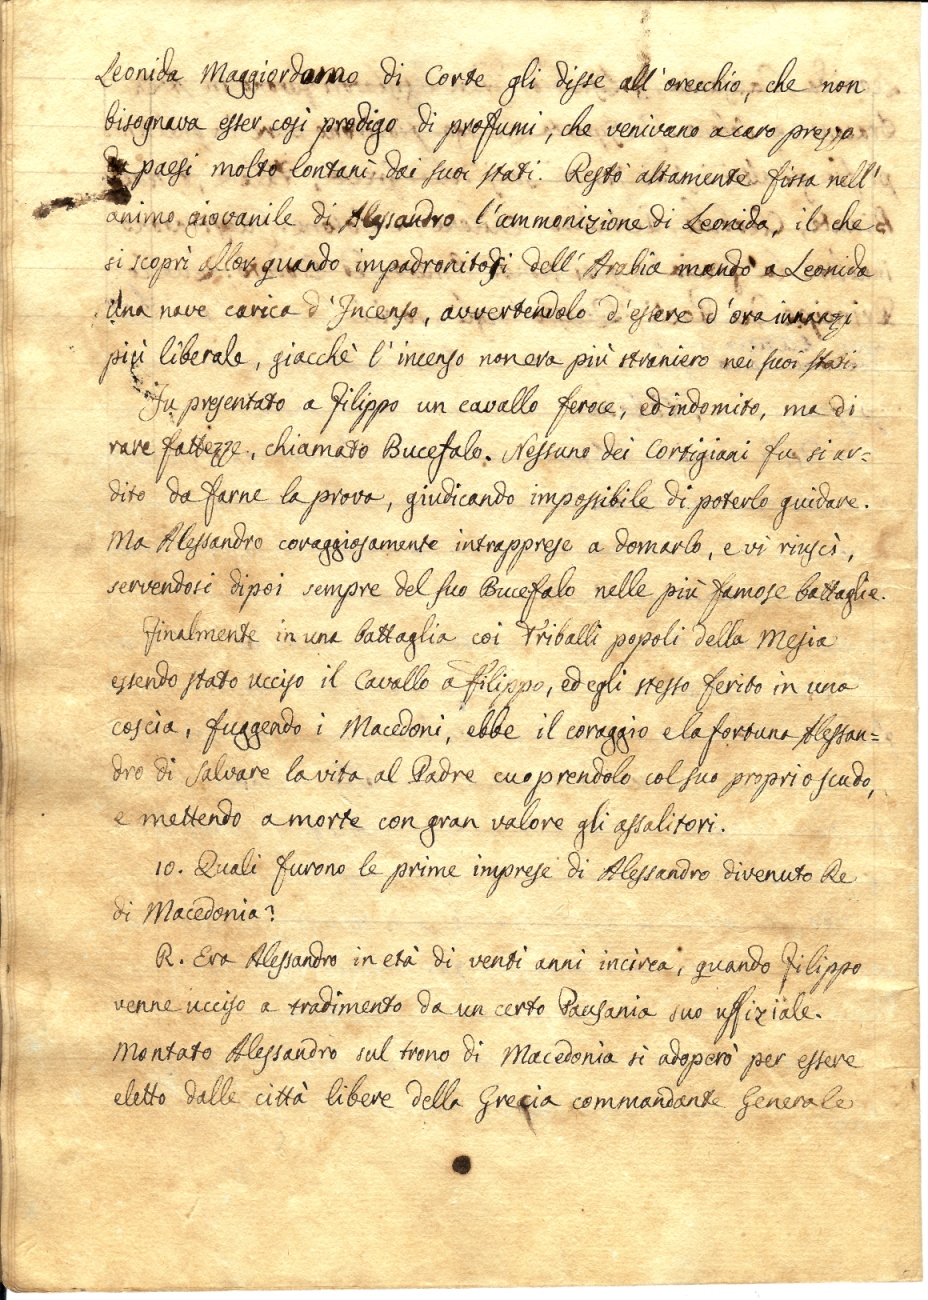 Leonida Maggiordomo di Corte gli disse all'orecchio, che non
bisognava esser così prodigo di profumi, che venivano a caro prezzo
da paesi molto lontani dai suoi stati. Restò altamente fissa nell'
animo giovanile di Alessandro l'ammonizione di Leonida, il che
si scoprì allor quando impadronitosi dell'Arabia mandò a Leonida
una nave carica d'Incenso, avvertendolo d'essere d'ora innanzi
più liberale, giacchè l'incenso non era più straniero nei suoi stati.
Fu presentato a Filippo un cavallo feroce, ed indomito, ma di
rare fattezze, chiamato Bucefalo. Nessuno dei Cortigiani fu si ar=
dito da farne la prova, giudicando impossibile di poterlo guidare.
Ma Alessandro coraggiosamente intrapprese a domarlo, e vi riuscì,
servendosi dipoi sempre del suo Bucefalo nelle più famose battaglie.
Finalmente in una battaglia coi Triballi popoli della Mesia
essendo stato ucciso il Cavallo a Filippo, ed egli stesso ferito in una
coscia, fuggendo i Macedoni, ebbe il coraggio e la fortuna Alessan=
dro di salvare la vita al Padre cuoprendolo col suo proprio scudo,
e mettendo a morte con gran valore gli assalitori.
10. Quali furono le prime imprese di Alessandro divenuto Re
di Macedonia?
R. Era Alessandro in età di venti anni incirca, quando Filippo
venne ucciso a tradimento da un certo Pausania suo uffiziale.
Montato Alessandro sul trono di Macedonia si adoperò per essere
eletto dalle città libere della Grecia commandante Generale